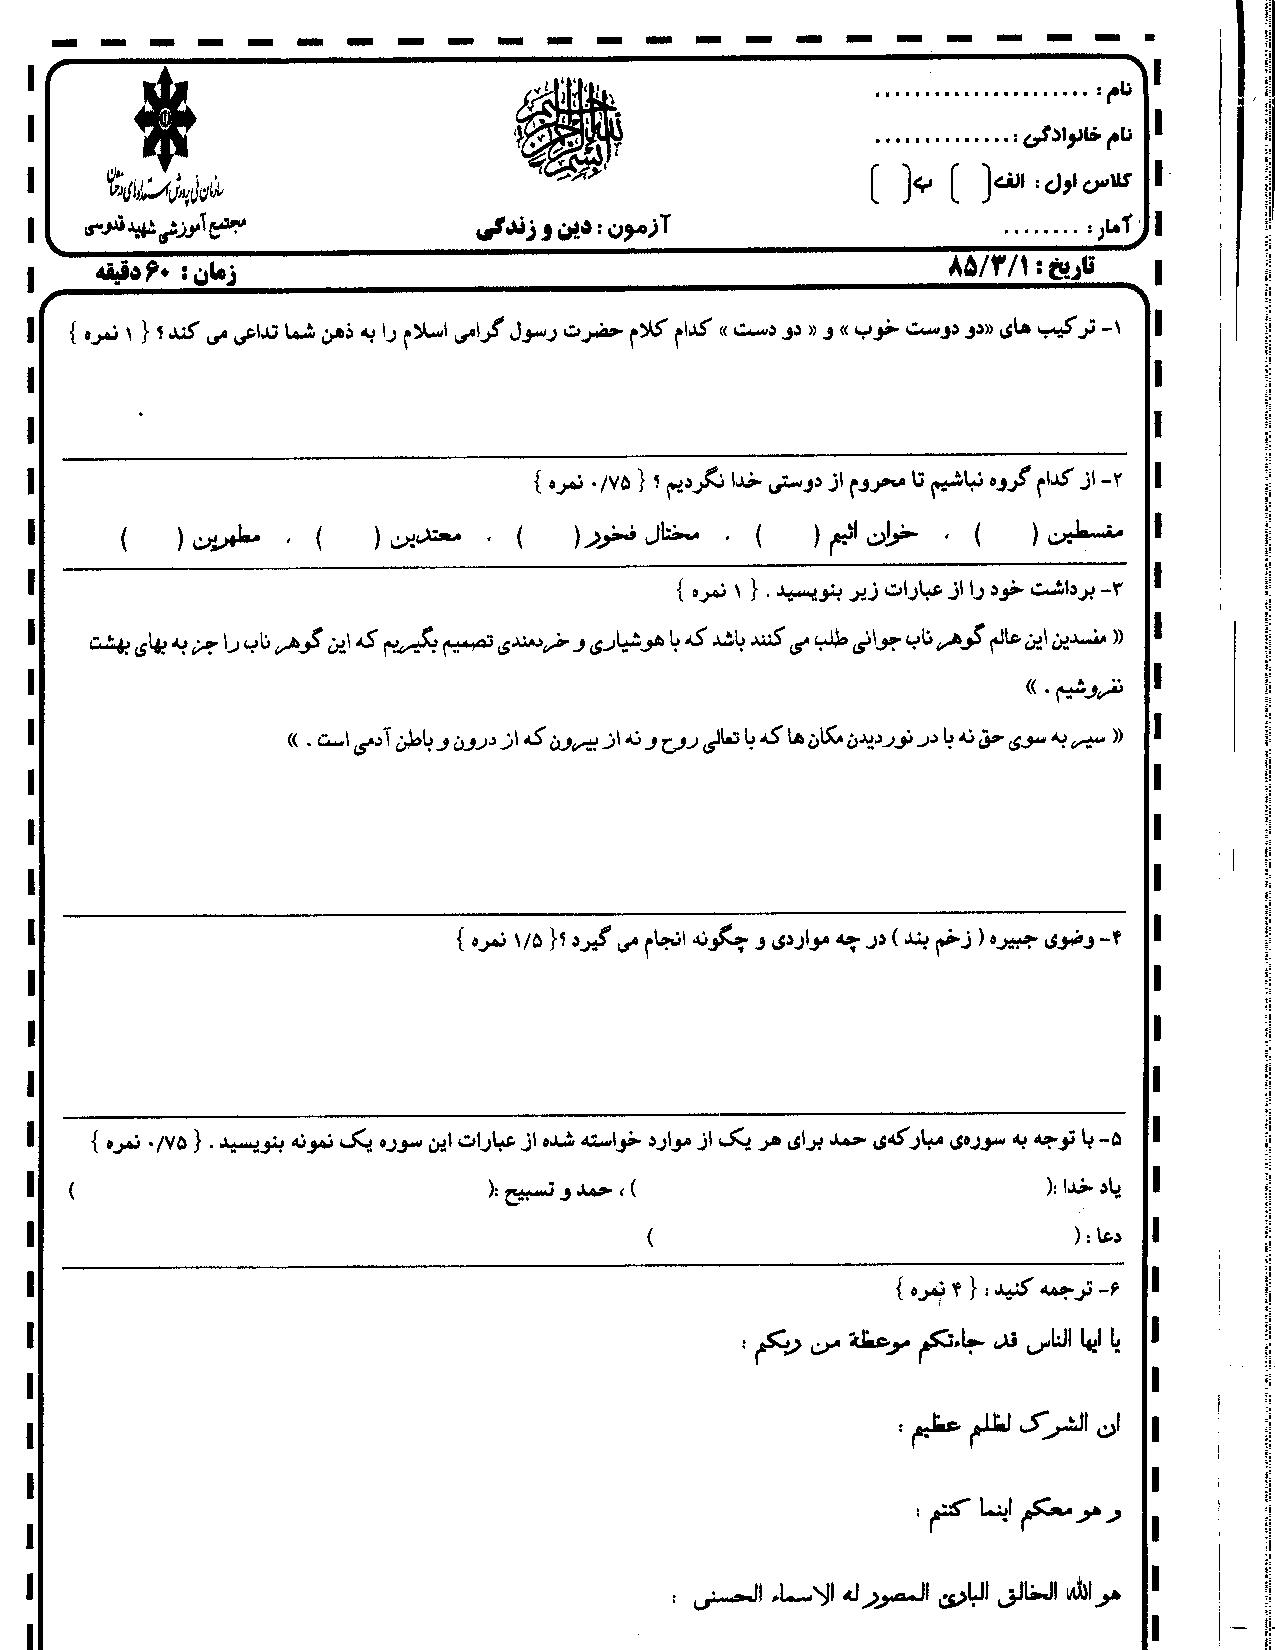 نام : ......................
نام خانوادگی :..............
کلاس اول : الف[ ] ب[ ]
آمار : ........
آزمون : دین و زندگی
سازمان ملی پرورش استعدادهای درخشان
مجتمع آموزشی شهید قدوسی
تاریخ : ۸۵/۳/۱
زمان : ۶۰ دقیقه
۱- ترکیب های «دو دوست خوب» و « دو دست » کدام کلام حضرت رسول گرامی اسلام را به ذهن شما تداعی می کند ؟ { ۱ نمره }
۲- از کدام گروه نباشیم تا محروم از دوستی خدا نگردیم ؟ { ۰/۷۵ نمره }
مقسطین ( ) ، خوان اثیم ( ) ، مختال فخور ( ) ، معتدین ( ) ، مطهرین ( )
۳- برداشت خود را از عبارات زیر بنویسید . { ۱ نمره }
« مفسدین این عالم گوهر ناب جوانی طلب می کنند باشد که با هوشیاری و خردمندی تصمیم بگیریم که این گوهر ناب را جز به بهای بهشت
نفروشیم . »
« سیر به سوی حق نه با در نوردیدن مکان ها که با تعالی روح و نه از بیرون که از درون و باطن آدمی است . »
۴- وضوی جبیره ( زخم بند ) در چه مواردی و چگونه انجام می گیرد ؟{ ۱/۵ نمره }
۵- با توجه به سوره‌ی مبارکه‌ی حمد برای هر یک از موارد خواسته شده از عبارات این سوره یک نمونه بنویسید . { ۰/۷۵ نمره }
یاد خدا :( ) ، حمد و تسبیح :( )
دعا : ( )
۶- ترجمه کنید : { ۴ نمره }
یا ایها الناس قد جاءتکم موعظة من ربکم :
ان الشرک لظلم عظیم :
و هو معکم اینما کنتم :
هو الله الخالق البارئ المصور له الاسماء الحسنی :